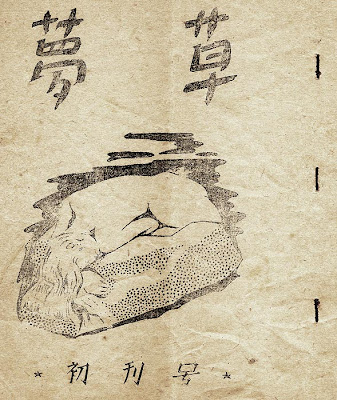 夢草
* 初刊号 *